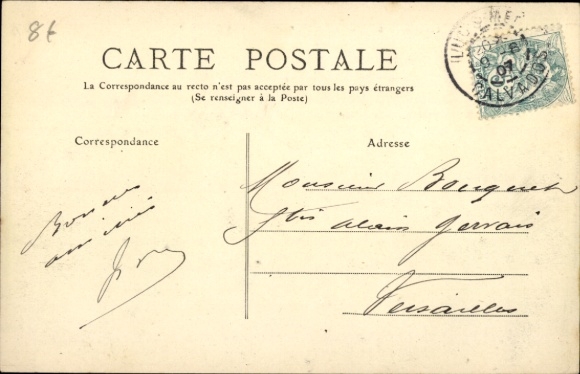 8€
CARTE POSTALE
La Correspondance au recto n'est pas acceptée par tous les pays étrangers
(Se renseigner à la Poste)
Correspondance
Adresse
Monsieur Bouquet
alain Gervais
Versailles
Bonnes
amitiés
07
CALVADOS